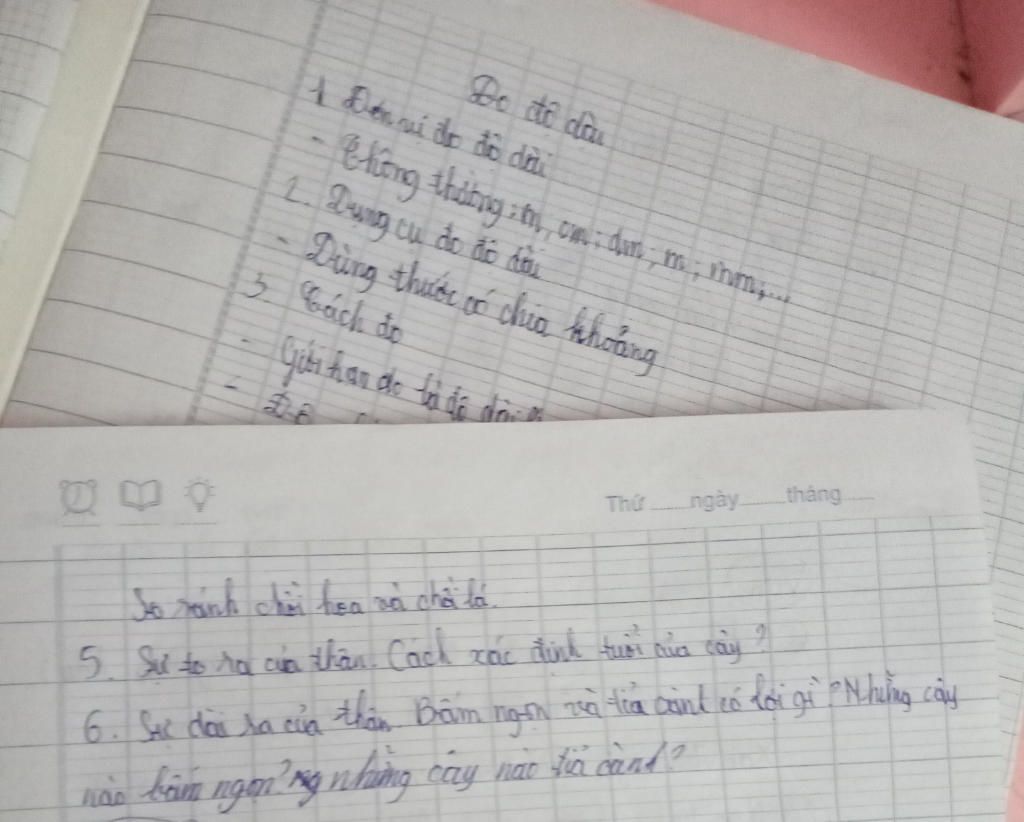 Đo độ dài
1 Đơn vị đo độ dài
- Thông thường: m, cm; dm, m; mm;...
2. Dụng cụ đo độ dài
- Dùng thước có chia khoảng
3. Cách đo
- Giới hạn đo là độ dài
- Độ
Thứ ngày tháng
So sánh chồi hoa và chồi lá.
5. Sự to ra của thân. Cách xác định tuổi của cây?
6. Sự dài ra của thân. Bấm ngọn và tỉa cành có lợi gì? Những cây
nào bấm ngọn? những cây nào tỉa cành?